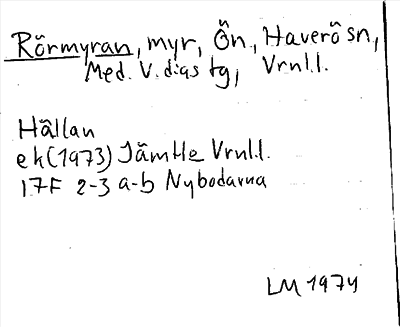 Rörmyran, myr, Ön, Haverö sn,
Med. V. dias tg, Vrnl.l.
Hållan
ek(1973) Jämtle Vrnl.l.
17F 2-3 a-b Nybodarna
LM 1974